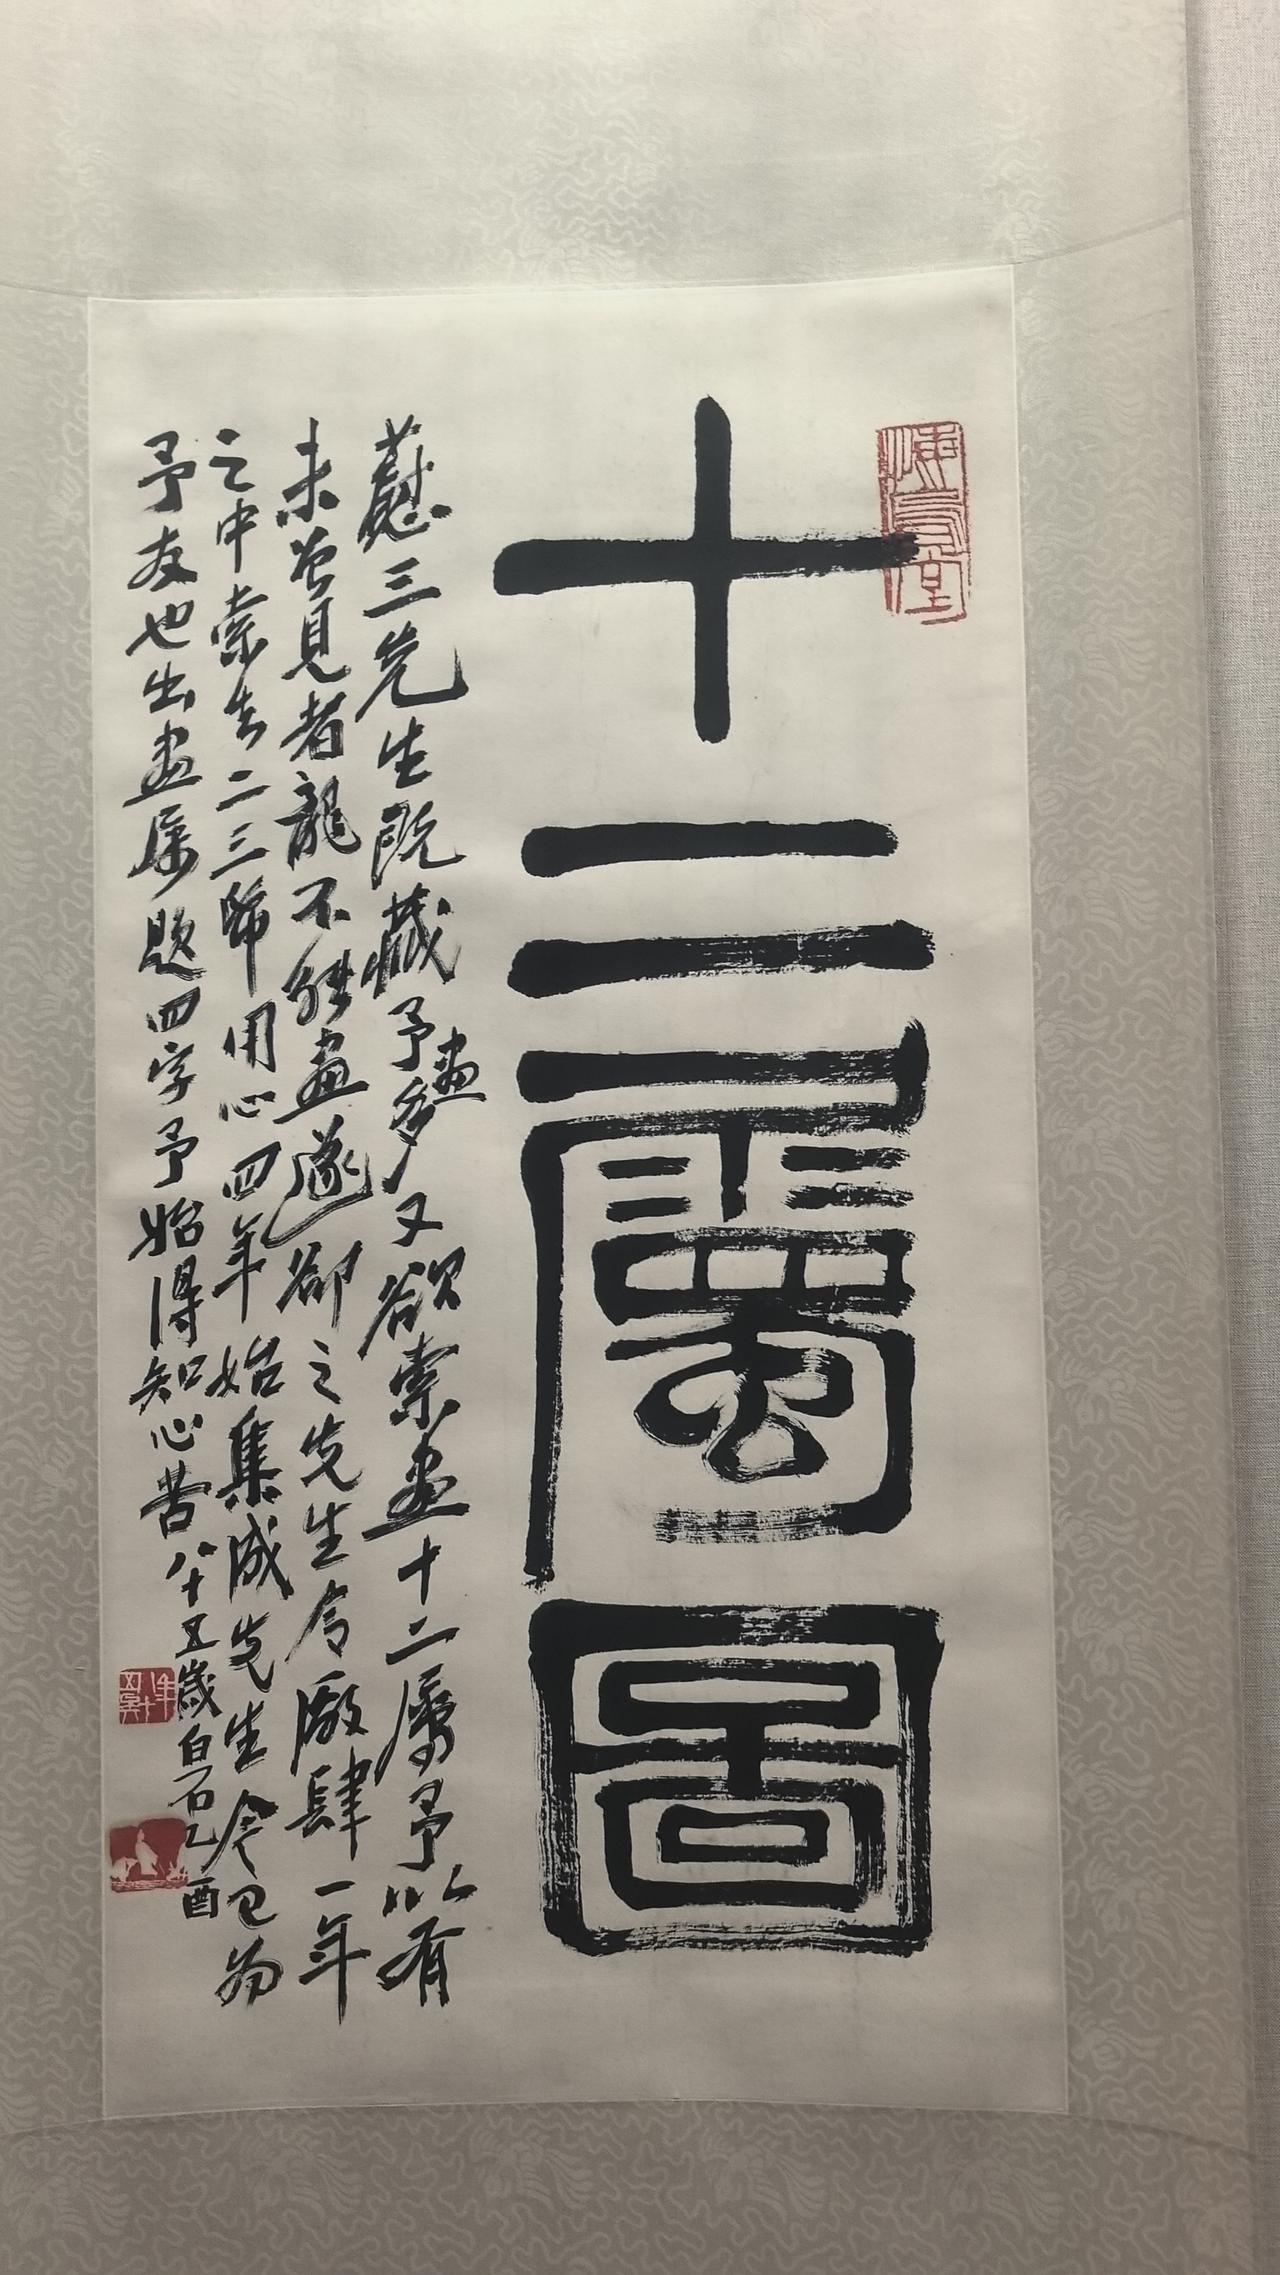 十二屬圖
蔻三先生既藏予畫多又欲索畫十二屬予以有
未曾見者龍不能畫遂卻之先生令廠肆一年
之中索去二三幀用心四年始集成先生今已為
予友也出畫屬題四字予始得知心苦八十五歲白石乙酉